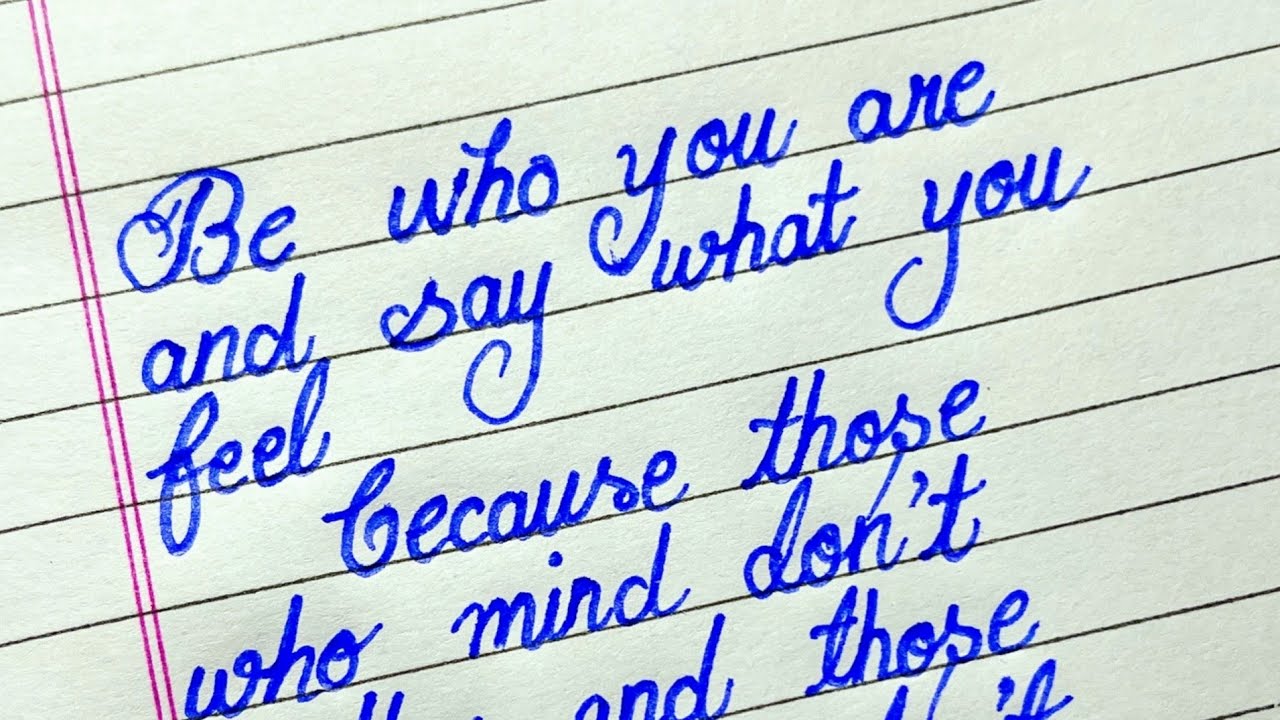 Be who you are
and say what you
feel
because those
who mind don't
and those